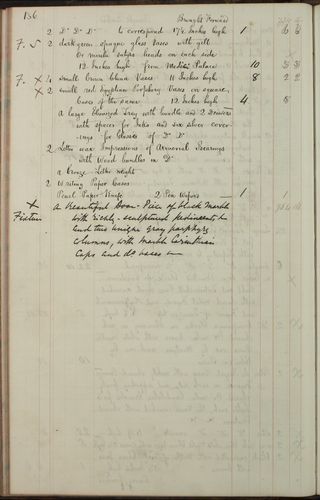 136
Brought Forward
2 Do Do Do to correspond 17½ Inches high 1
7. 5 2 dark green opaque glass Vases with gilt
Or molu satyr heads on each side
12 Inches high from Medici Palace 10
7. X 4 small Green Vases 11 Inches high 8
X 2 small red Egyptian Porphyry Vases on square
bases of the same 12 Inches high 4
A large Ebonized Tray with handle and 2 Drawers
with spaces for Inks and six silver cover-
ings for Glasses of Do Do
2 Letter wax Impressions of Armorial Bearings
with Wood handles in Do
a bronze Letter weight
2 Writing Paper Cases
Pearl Paper Knife 2 Pen Wipers 1
X A beautiful Door-Piece of black Marble
Fixture with richly-sculptured pediment &c
and two unique gray porphyry
columns, with Marble Corinthian
Caps and do vases